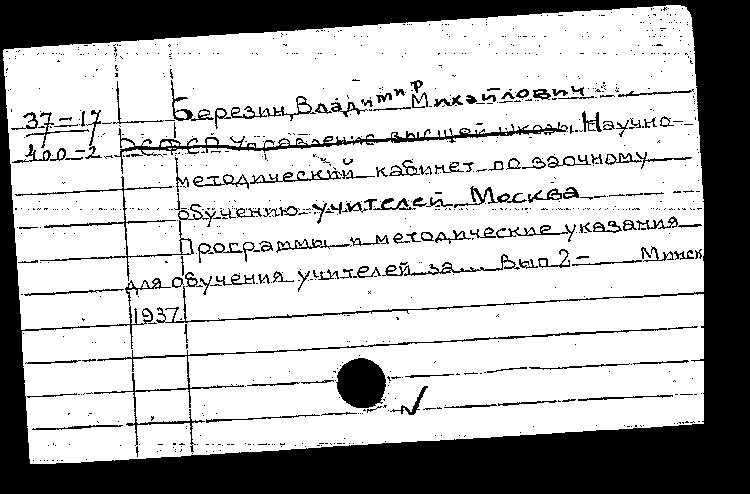 37-17 Березин, Владимир Михайлович
400-2 РСФСР. Управление высшей школы, Научно-
методический кабинет по заочному
обучению учителей Москва
Программы и методические указания
для обучения учителей за... Вып 2- Минск
1937.